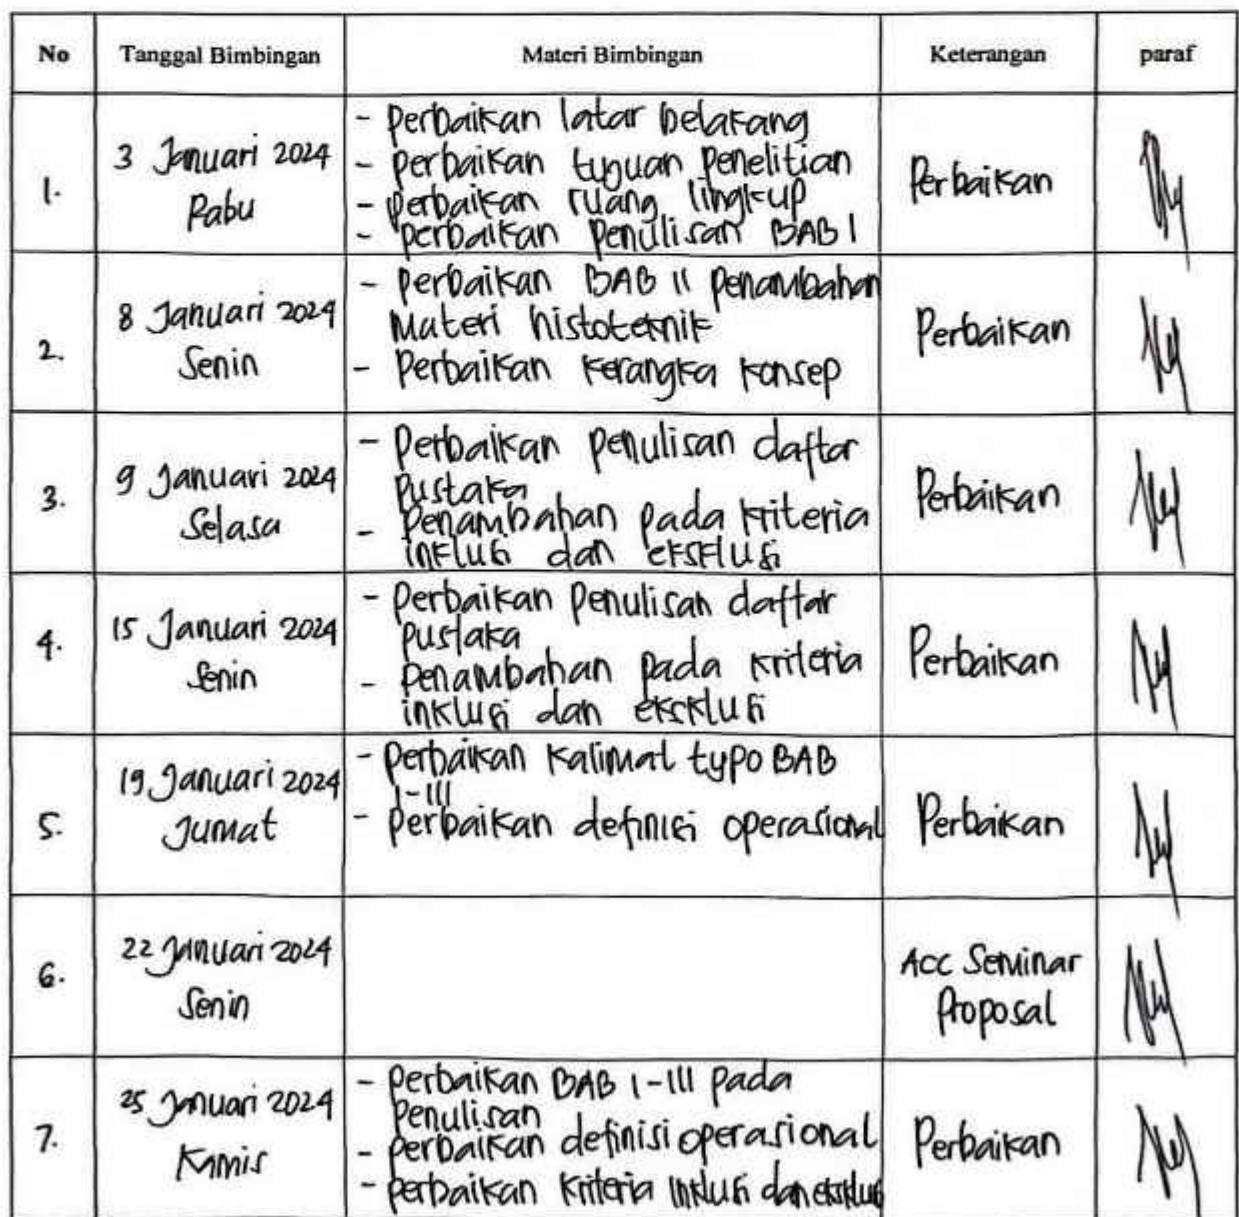 No Tanggal Bimbingan Materi Bimbingan Keterangan paraf
1.
3 Januari 2024
Rabu
- perbaikan latar belakang
- perbaikan tujuan penelitian
- perbaikan ruang lingkup
- perbaikan penulisan BAB I
Perbaikan
2.
8 Januari 2024
Senin
- perbaikan BAB II penambahan
Materi histoteknik
- Perbaikan kerangka konsep
Perbaikan
3.
9 Januari 2024
Selasa
- Perbaikan penulisan daftar
pustaka
- penambahan pada kriteria
inklusi dan eksklusi
Perbaikan
4.
15 Januari 2024
Senin
- perbaikan penulisan daftar
pustaka
- penambahan pada kriteria
inklusi dan eksklusi
Perbaikan
5.
19 Januari 2024
Jumat
- perbaikan kalimat typo BAB
I-III
- perbaikan definisi operasional
Perbaikan
6.
22 Januari 2024
Senin
Acc Seminar
Proposal
7.
25 Januari 2024
Kamis
- perbaikan BAB I-III pada
penulisan
- perbaikan definisi operasional
- perbaikan kriteria inklusi dan eksklusi
Perbaikan